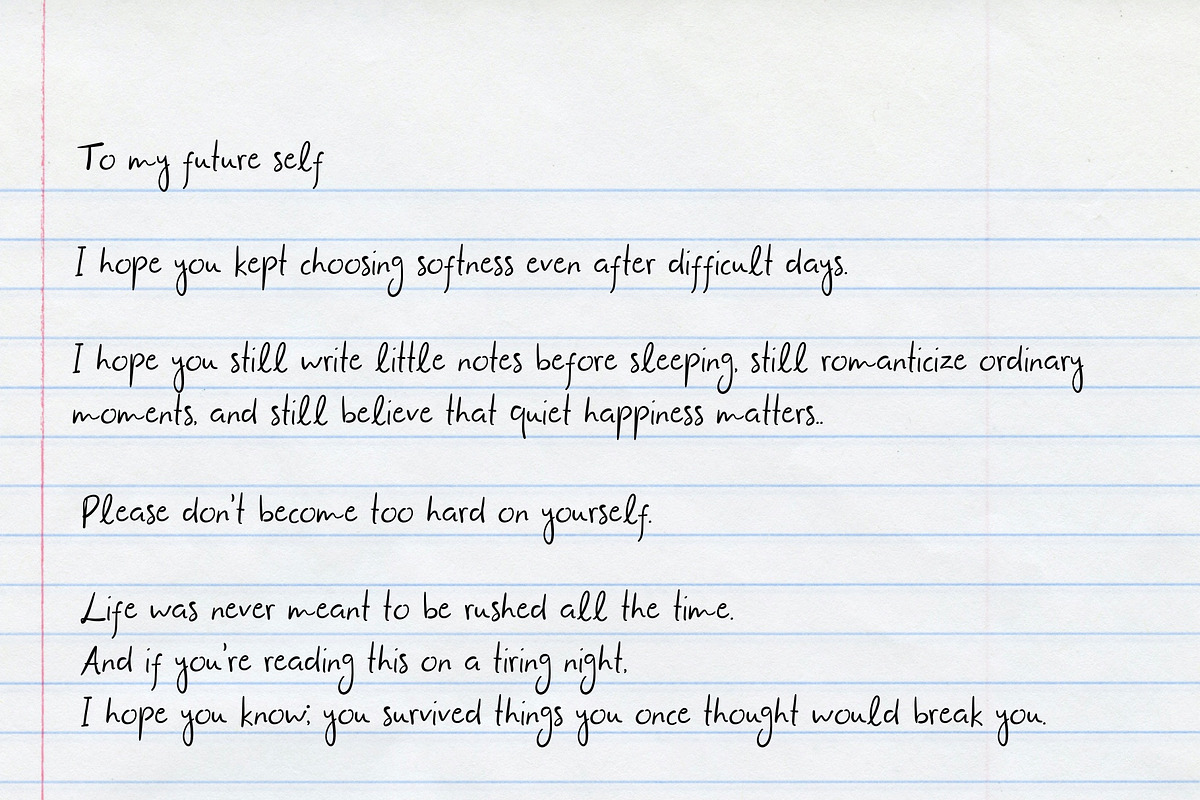 To my future self
I hope you kept choosing softness even after difficult days.
I hope you still write little notes before sleeping, still romanticize ordinary
moments, and still believe that quiet happiness matters..
Please don't become too hard on yourself.
Life was never meant to be rushed all the time.
And if you're reading this on a tiring night,
I hope you know; you survived things you once thought would break you.